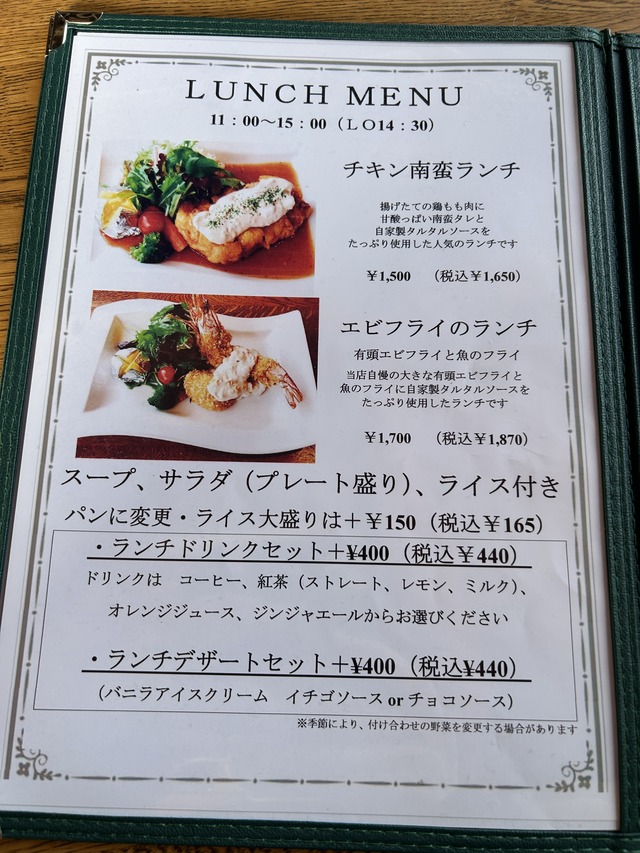 LUNCH MENU
11：00～15：00（ＬＯ14：30）
チキン南蛮ランチ
揚げたての鶏もも肉に
甘酸っぱい南蛮タレと
自家製タルタルソースを
たっぷり使用した人気のランチです
￥1,500　（税込￥1,650）
エビフライのランチ
有頭エビフライと魚のフライ
当店自慢の大きな有頭エビフライと
魚のフライに自家製タルタルソースを
たっぷり使用したランチです
￥1,700　（税込￥1,870）
スープ、サラダ（プレート盛り）、ライス付き
パンに変更・ライス大盛りは＋￥150（税込￥165）
・ランチドリンクセット＋¥400（税込￥440）
ドリンクは　コーヒー、紅茶（ストレート、レモン、ミルク）、
オレンジジュース、ジンジャエールからお選びください
・ランチデザートセット＋¥400（税込¥440）
（バニラアイスクリーム　イチゴソース or チョコソース）
※季節により、付け合わせの野菜を変更する場合があります